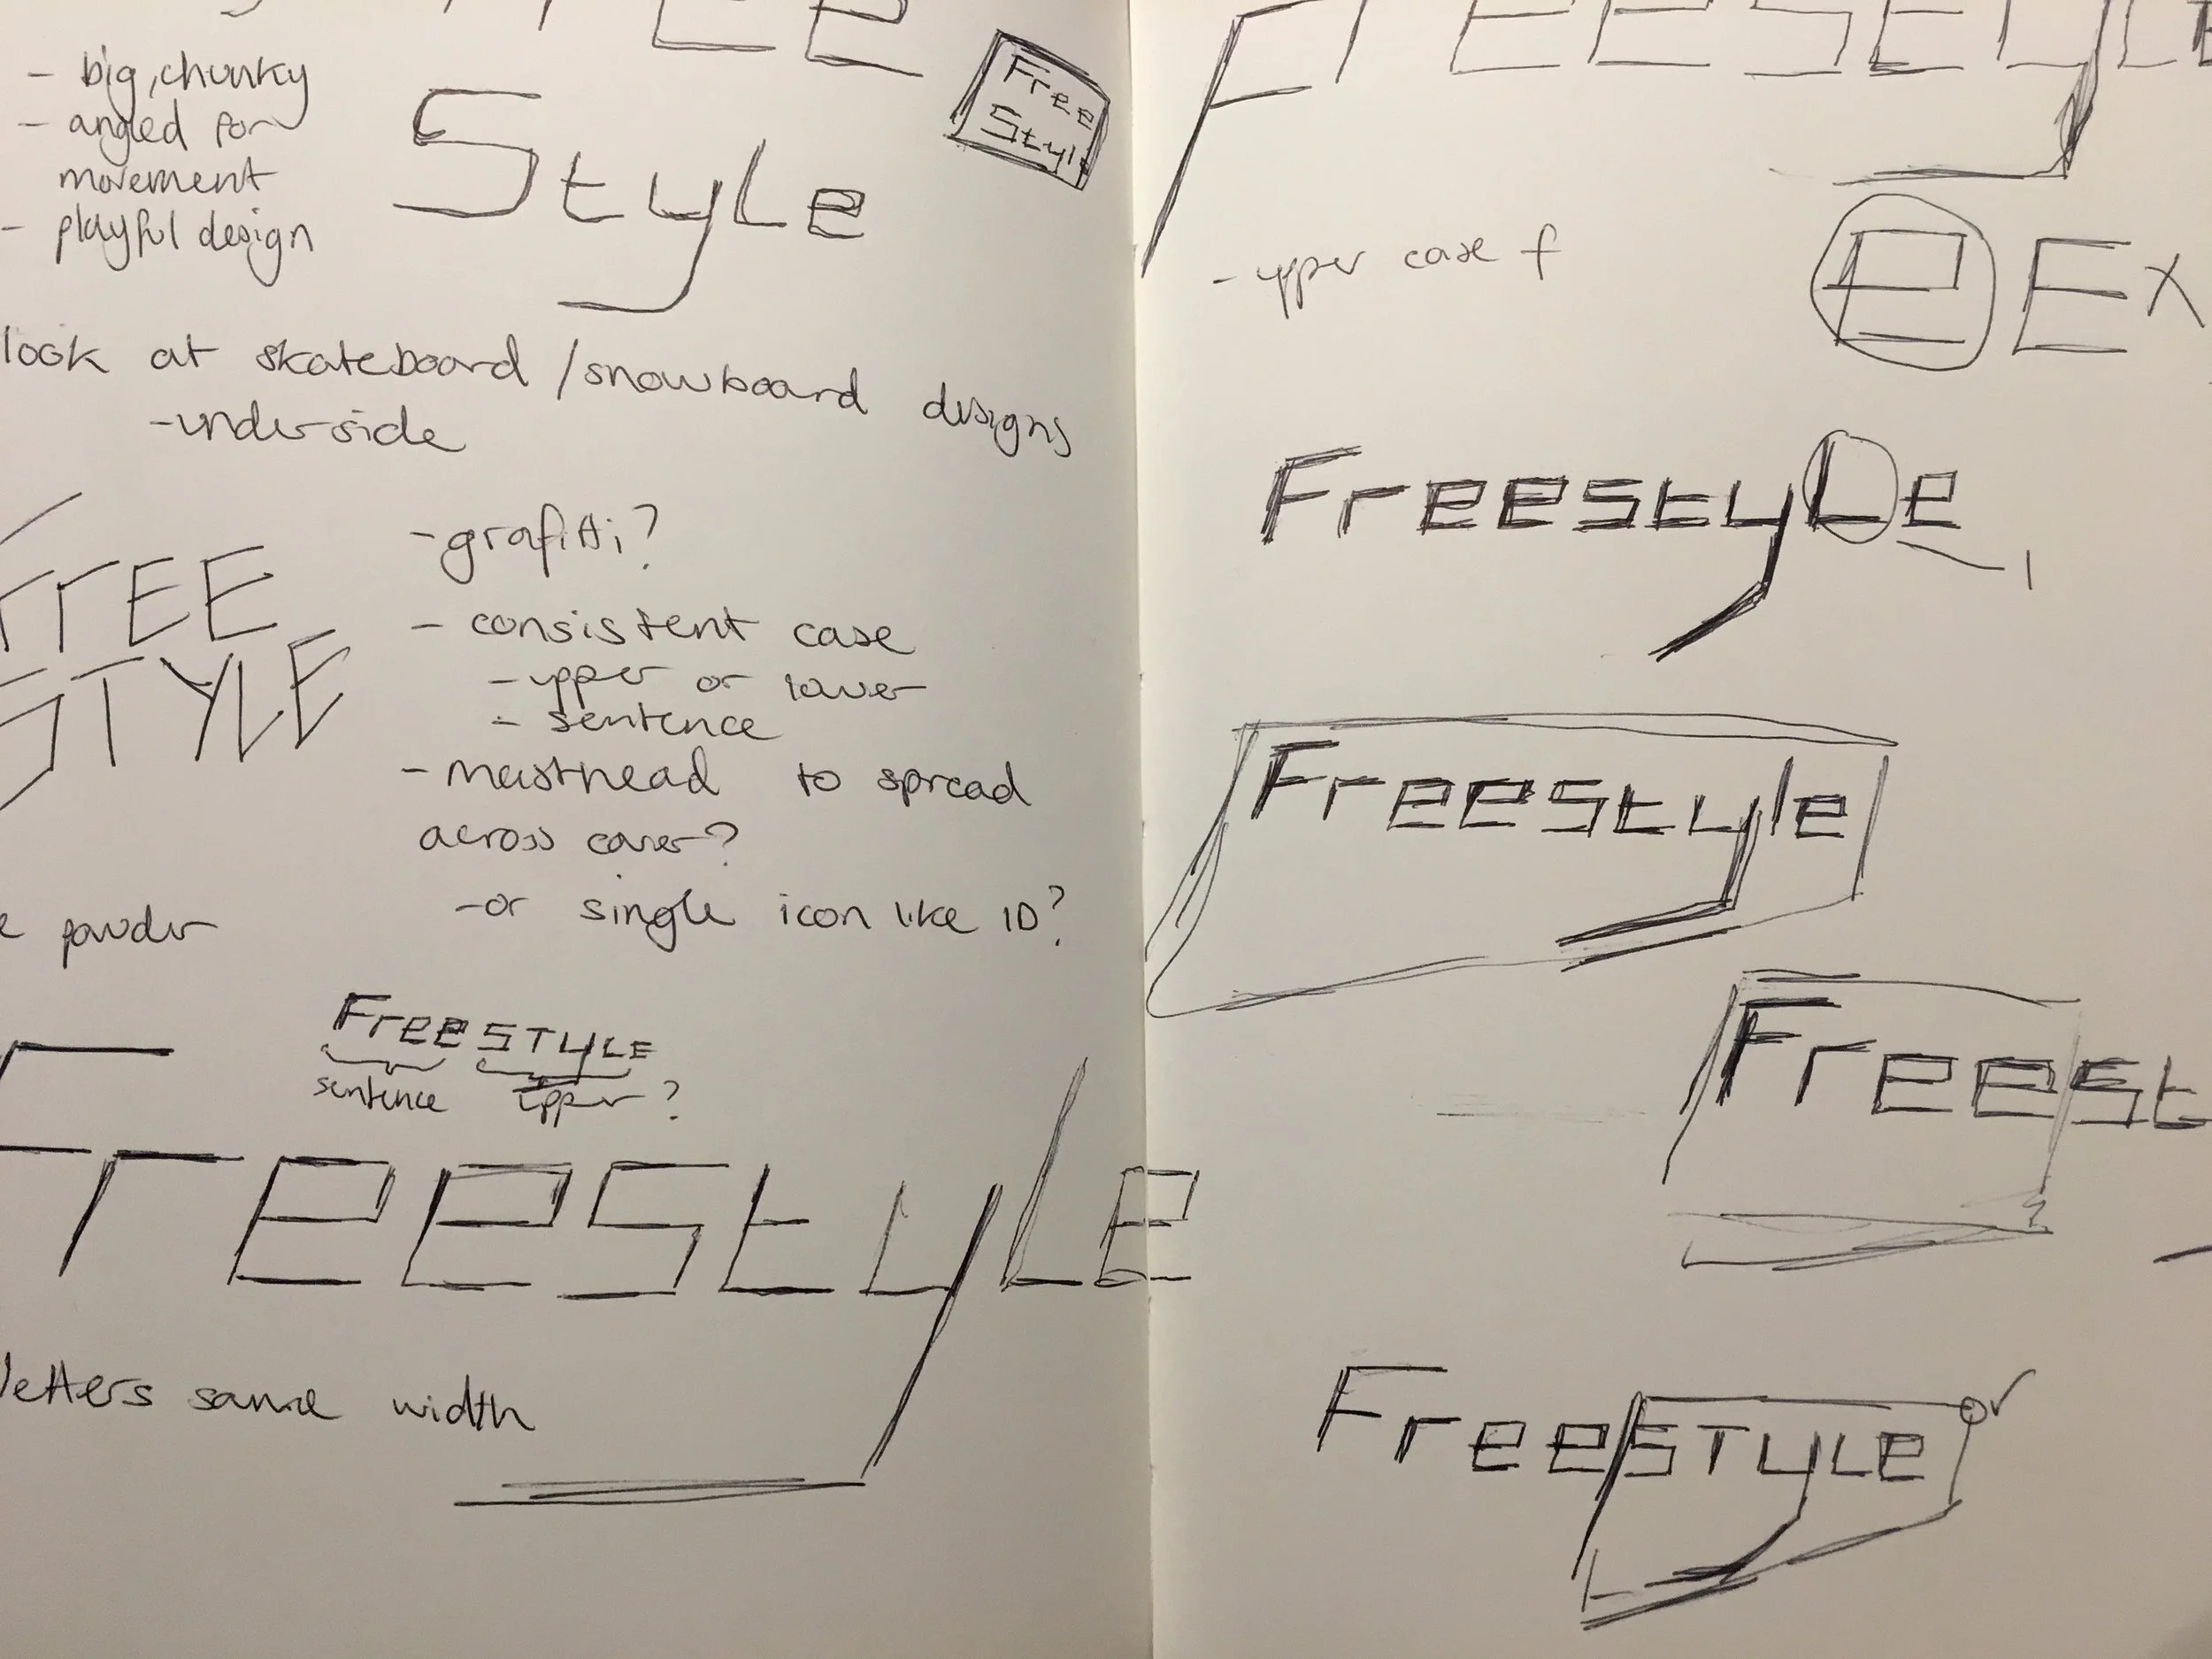 - big, chunky
- angled for
movement
- playful design
Style
Free
Style
look at skateboard / snowboard designs
- underside
FREE
STYLE
- grafitti?
- consistent case
- upper or lower
- sentence
- masthead to spread
across cover?
- or single icon like iD?
powder
FreeSTYLE
sentence upper?
Freestyle
letters same width
Freestyle
- upper case f
e E X
FreestyLe
l
Freestyle
Freest
FreeSTyLe